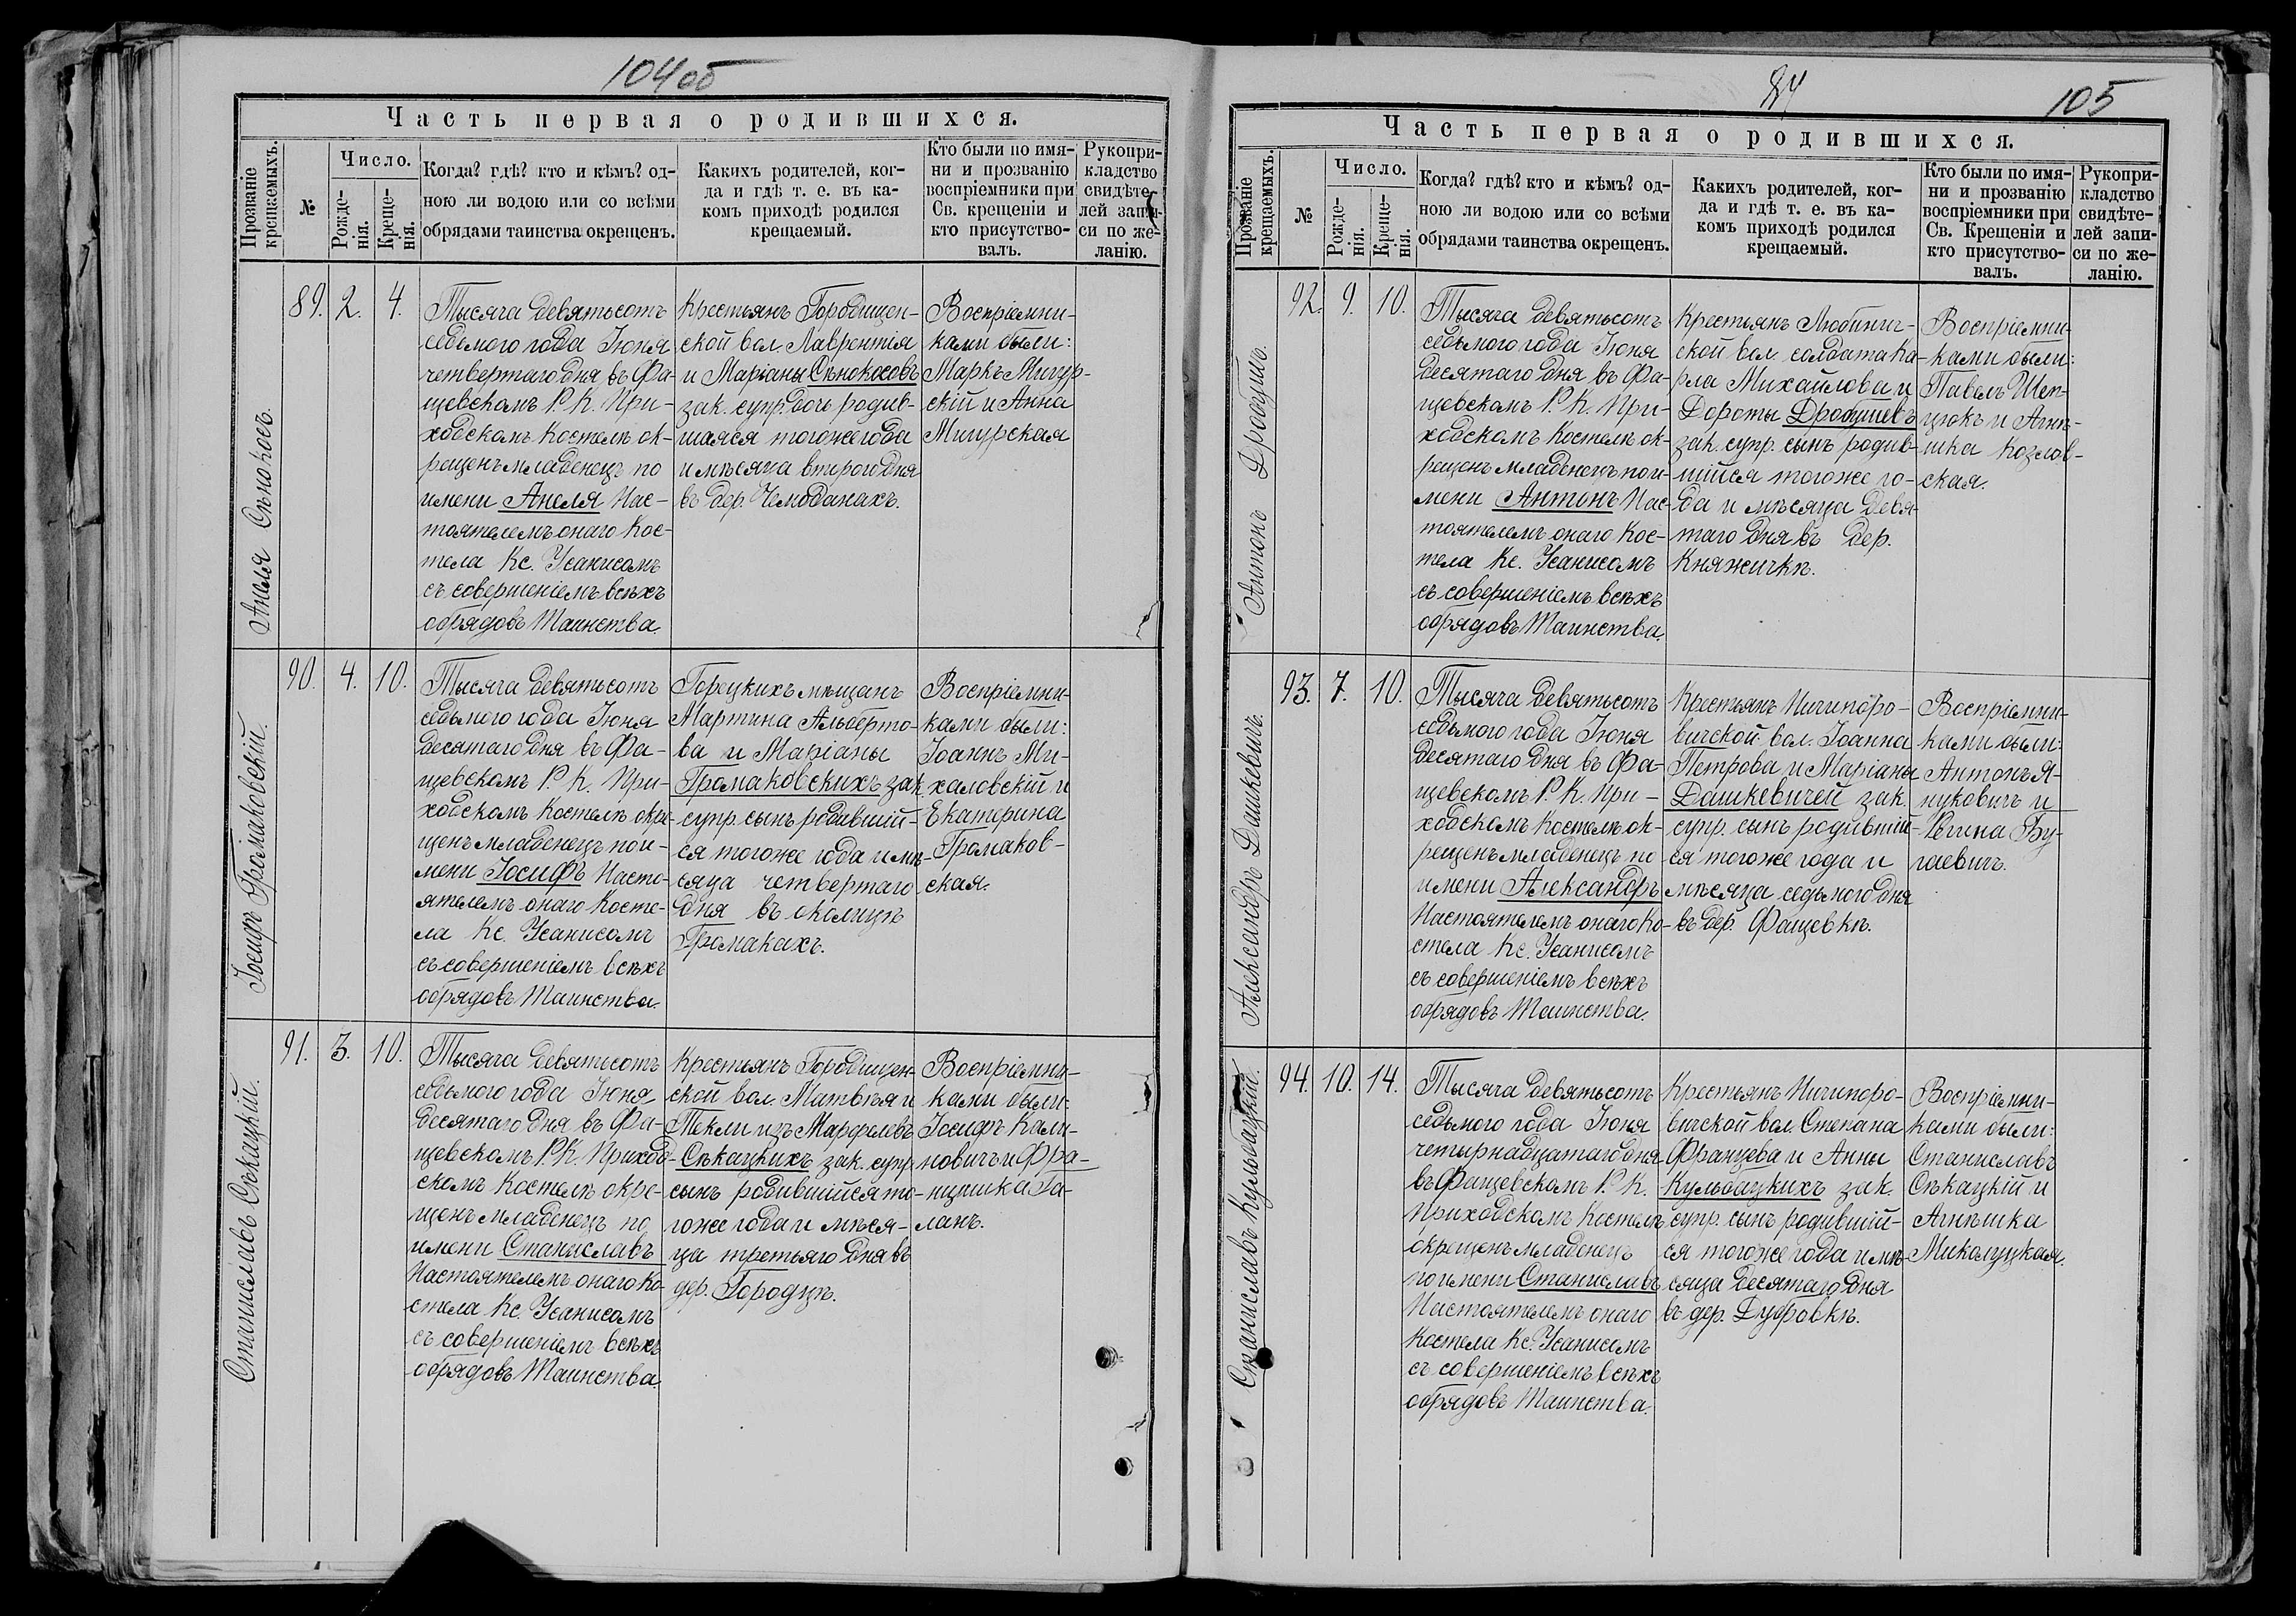 104об
Часть первая о родившихся.
Прозваніе крещаемыхъ.
№
Число.
Рожде-
нія.
Креще-
нія.
Когда? гдѣ? кто и кѣмъ? од-
ною ли водою или со всѣми
обрядами таинства окрещенъ.
Какихъ родителей, ког-
да и гдѣ т. е. въ ка-
комъ приходѣ родился
крещаемый.
Кто были по имя-
ни и прозванію
воспріемники при
Св. крещеніи и
кто присутство-
валъ.
Рукопри-
кладство
свидѣте-
лей запи-
си по же-
ланію.
Анеля Сѣнокосъ.
89. 2. 4.
Тысяча девятьсотъ
седьмого года Іюня
четвертаго дня въ Фа-
щевскомъ Р. К. При-
ходскомъ Костелѣ ок-
рещенъ младенецъ по
имени Анеля Нас-
тоятелемъ онаго Кос-
тела Кс. Усанисомъ
съ совершеніемъ всѣхъ
обрядовъ Таинства.
Крестьянъ Городищен-
ской вол. Лаврентія
и Маріаны Сѣнокосовъ
зак. супр. дочь родив-
шаяся тогоже года
и мѣсяца второго дня
въ дер. Чемоданахъ.
Воспріемни-
ками были:
Маркъ Мигур-
скій и Анна
Мигурская
Іосифъ Громаковскій.
90. 4. 10.
Тысяча девятьсотъ
седьмого года Іюня
десятаго дня въ Фа-
щевскомъ Р. К. При-
ходскомъ Костелѣ окре-
щенъ младенецъ по и-
мени Іосифъ Насто-
ятелемъ онаго Косте-
ла Кс. Усанисомъ
съ совершеніемъ всѣхъ
обрядовъ Таинства.
Горецкихъ мѣщанъ
Мартина Альберто-
ва и Маріаны
Громаковскихъ зак.
супр. сынъ родившій-
ся тогоже года и мѣ-
сяца четвертаго
дня въ околицѣ
Громакахъ.
Воспріемни-
ками были:
Іоаннъ Ми-
халовскій и
Екатерина
Громаков-
ская.
Станиславъ Сѣкацкій.
91. 3. 10.
Тысяча девятьсотъ
седьмого года Іюня
десятаго дня въ Фа-
щевскомъ Р. К. Приход-
скомъ Костелѣ окре-
щенъ младенецъ по
имени Станиславъ
Настоятелемъ онаго Ко-
стела Кс. Усанисомъ
съ совершеніемъ всѣхъ
обрядовъ Таинства.
Крестьянъ Городищен-
ской вол. Матвѣя и
Текли изъ Марфелевъ
Сѣкацкихъ зак. супр.
сынъ родившійся то-
гоже года и мѣся-
ца третьяго дня въ
дер. Городцѣ.
Воспріемни-
ками были:
Іосифъ Кали-
новичъ и Фра-
нцишка Га-
ланъ.
84
105
Часть первая о родившихся.
Прозваніе крещаемыхъ.
№
Число.
Рожде-
нія.
Креще-
нія.
Когда? гдѣ? кто и кѣмъ? од-
ною ли водою или со всѣми
обрядами таинства окрещенъ.
Какихъ родителей, ког-
да и гдѣ т. е. въ ка-
комъ приходѣ родился
крещаемый.
Кто были по имя-
ни и прозванію
воспріемники при
Св. Крещеніи и
кто присутство-
валъ.
Рукопри-
кладство
свидѣте-
лей запи-
си по же-
ланію.
Антонъ Дробушъ.
92. 9. 10.
Тысяча девятьсотъ
седьмого года Іюня
десятаго дня въ Фа-
щевскомъ Р. К. При-
ходскомъ Костелѣ ок-
рещенъ младенецъ по и-
мени Антонъ Нас-
тоятелемъ онаго Кос-
тела Кс. Усанисомъ
съ совершеніемъ всѣхъ
обрядовъ Таинства.
Крестьянъ Любинич-
ской вол. солдата Ка-
рла Михайлова и
Дороты Дробушевъ
зак. супр. сынъ родив-
шійся тогоже го-
да и мѣсяца девя-
таго дня въ дер.
Княжичкѣ.
Воспріемни-
ками были:
Павелъ Шеп-
цюкъ и Агнѣ-
шка Козлов-
ская.
Александръ Дашкевичъ.
93. 7. 10.
Тысяча девятьсотъ
седьмого года Іюня
десятаго дня въ Фа-
щевскомъ Р. К. При-
ходскомъ Костелѣ ок-
рещенъ младенецъ по
имени Александръ
Настоятелемъ онаго Ко-
стела Кс. Усанисомъ
съ совершеніемъ всѣхъ
обрядовъ Таинства.
Крестьянъ Ничипоро-
вичской вол. Іоанна
Петрова и Маріаны
Дашкевичей зак.
супр. сынъ родившій-
ся тогоже года и
мѣсяца седьмого дня
въ дер. Фащевкѣ.
Воспріемни-
ками были:
Антонъ Я-
нуковичъ и
Регина Бу-
гаевичъ.
Станиславъ Кульбацкій.
94. 10. 14.
Тысяча девятьсотъ
седьмого года Іюня
четырнадцатаго дня
въ Фащевскомъ Р. К.
Приходскомъ Костелѣ
окрещенъ младенецъ
по имени Станиславъ
Настоятелемъ онаго
Костела Кс. Усанисомъ
съ совершеніемъ всѣхъ
обрядовъ Таинства.
Крестьянъ Ничипоро-
вичской вол. Степана
Францева и Анны
Кульбацкихъ зак.
супр. сынъ родившій-
ся тогоже года и мѣ-
сяца десятаго дня
въ дер. Дубровкѣ.
Воспріемни-
ками были:
Станиславъ
Сѣкацкій и
Агнѣшка
Миколуцкая.